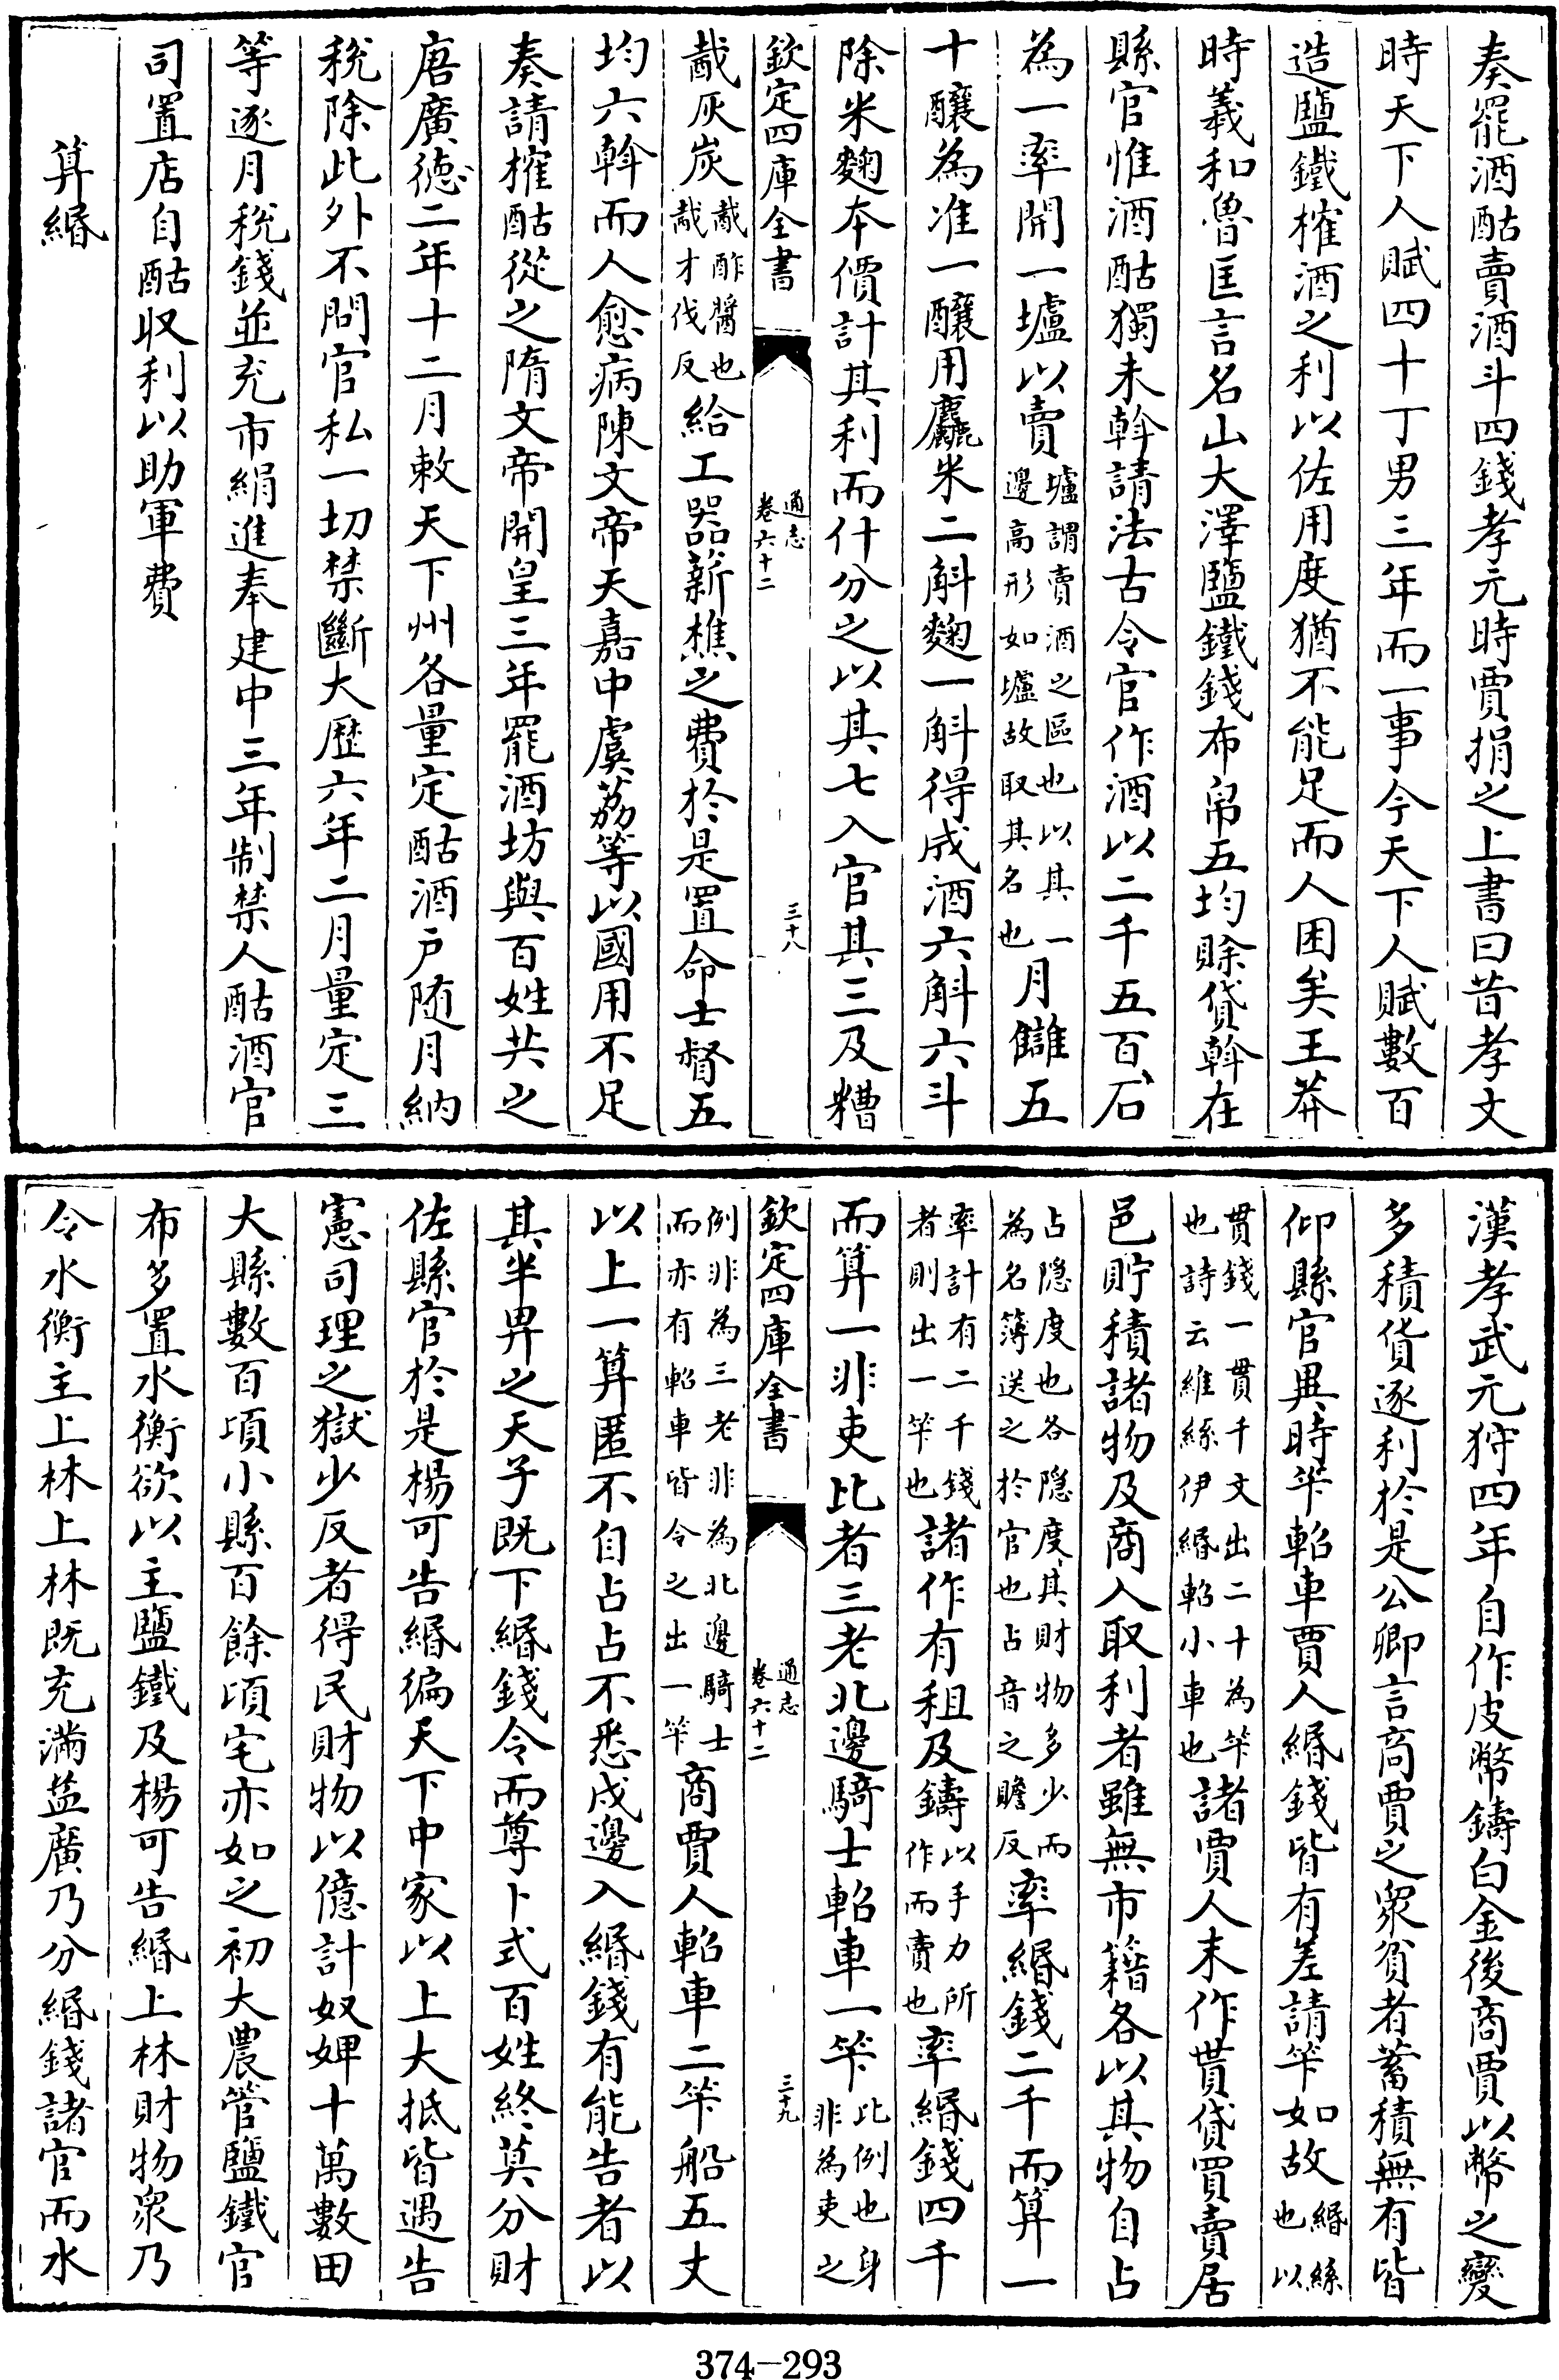 奏罷酒酤賣酒斗四錢孝元時賈捐之上書曰昔孝文
時天下人賦四十丁男三年而一事今天下人賦數百
造鹽鐵榷酒之利以佐用度猶不能足而人困矣王莽
時羲和魯匡言名山大澤鹽鐵錢布帛五均賒貸斡在
縣官惟酒酤獨未斡請法古令官作酒以二千五百石
為一率開一壚以賣壚謂賣酒之區也以其一邊高形如壚故取其名也月讎五
十釀為准一釀用麤米二斛麴一斛得成酒六斛六斗
除米麴本價計其利而什分之以其七入官其三及糟
欽定四庫全書 通志卷六十二 三十八
酨灰炭酨酢醬也酨才伐反給工器薪樵之費於是置命士督五
均六斡而人愈病陳文帝天嘉中虞荔等以國用不足
奏請榷酤從之隋文帝開皇三年罷酒坊與百姓共之
唐廣德二年十二月敕天下州各量定酤酒戶随月納
稅除此外不問官私一切禁斷大歷六年二月量定三
等逐月稅錢並充市絹進奉建中三年制禁人酤酒官
司置店自酤収利以助軍費
算緡
漢孝武元狩四年自作皮幣鑄白金後商賈以幣之變
多積貨逐利於是公卿言商賈之衆貧者蓄積無有皆
仰縣官異時笇軺車賈人緡錢皆有差請笇如故緡絲也以
貫錢一貫千文出二十為笇也詩云維絲伊緡軺小車也諸賈人末作貰貸買賣居
邑貯積諸物及商入取利者雖無市籍各以其物自占
占隠度也各隠度其財物多少而為名簿送之於官也占音之贍反率緡錢二千而算一
率計有二千錢者則出一笇也諸作有租及鑄以手力所作而賣也率緡錢四千
而算一非吏比者三老北邊騎士軺車一笇比例也身非為吏之
欽定四庫全書 通志卷六十二 三十九
例非為三老非為北邊騎士而亦有軺車皆令之出一笇商賈人軺車二笇船五丈
以上一算匿不自占占不悉戍邊入緡錢有能告者以
其半畀之天子既下緡錢令而尊卜式百姓終莫分財
佐縣官於是楊可告緡徧天下中家以上大抵皆遇告
憲司理之獄少反者得民財物以億計奴婢十萬數田
大縣數百頃小縣百餘頃宅亦如之初大農管鹽鐵官
布多置水衡欲以主鹽鐵及楊可告緡上林財物衆乃
令水衡主上林上林既充滿益廣乃分緡錢諸官而水
374-293